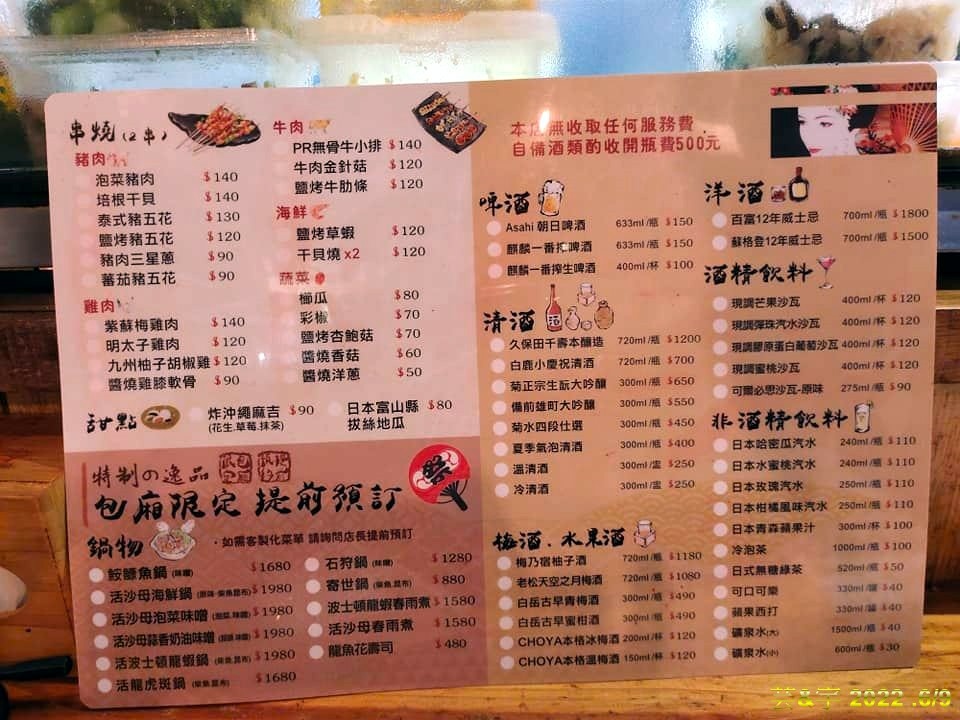 串燒(2串)
豬肉
泡菜豬肉 $140
培根干貝 $140
泰式豬五花 $130
鹽烤豬五花 $120
豬肉三星蔥 $90
蕃茄豬五花 $90
雞肉
紫蘇梅雞肉 $140
明太子雞肉 $120
九州柚子胡椒雞 $120
醬燒雞膝軟骨 $90
牛肉
PR無骨牛小排 $140
牛肉金針菇 $120
鹽烤牛肋條 $120
海鮮
鹽烤草蝦 $120
干貝燒 x2 $120
蔬菜
櫛瓜 $80
彩椒 $70
鹽烤杏鮑菇 $70
醬燒香菇 $60
醬燒洋蔥 $50
甜點
炸沖繩麻吉 $90
(花生.草莓.抹茶)
日本富山縣 $80
拔絲地瓜
特制の逸品
包廂限定 提前預訂
鍋物
·如需客製化菜單 請詢問店長提前預訂
鮟鱇魚鍋 (味噌) $1680
活沙母海鮮鍋 (原味·柴魚昆布) $1980
活沙母泡菜味噌 $1980
活沙母蒜香奶油味噌 $1980
活波士頓龍蝦鍋 (柴魚昆布) $1980
活龍虎斑鍋 (柴魚昆布) $1680
石狩鍋 (味噌) $1280
寄世鍋 (柴魚.昆布) $880
波士頓龍蝦春雨煮 $1580
活沙母春雨煮 $1580
龍魚花壽司 $480
本店無收取任何服務費.
自備酒類酌收開瓶費500元
啤酒
Asahi 朝日啤酒 633ml/瓶 $150
麒麟一番搾啤酒 633ml/瓶 $150
麒麟一番搾生啤酒 400ml/杯 $100
清酒
久保田千壽本釀造 720ml/瓶 $1200
白鹿小慶祝清酒 720ml/瓶 $700
菊正宗生酛大吟釀 300ml/瓶 $650
備前雄町大吟釀 300ml/瓶 $550
菊水四段仕選 300ml/瓶 $450
夏季氣泡清酒 300ml/瓶 $400
溫清酒 300ml/壺 $250
冷清酒 300ml/壺 $250
梅酒、水果酒
梅乃宿柚子酒 720ml/瓶 $1180
老松天空之月梅酒 720ml/瓶 $1080
白岳古早青梅酒 300ml/瓶 $490
白岳古早蜜柑酒 300ml/瓶 $490
CHOYA本格冰梅酒 200ml/杯 $120
CHOYA本格溫梅酒 150ml/杯 $120
洋酒
百富12年威士忌 700ml/瓶 $1800
蘇格登12年威士忌 700ml/瓶 $1500
酒精飲料
現調芒果沙瓦 400ml/杯 $120
現調彈珠汽水沙瓦 400ml/杯 $120
現調膠原蛋白葡萄沙瓦 400ml/杯 $120
現調蜜桃沙瓦 400ml/杯 $120
可爾必思沙瓦-原味 275ml/瓶 $90
非酒精飲料
日本哈密瓜汽水 240ml/瓶 $110
日本水蜜桃汽水 240ml/瓶 $110
日本玫瑰汽水 250ml/瓶 $110
日本柑橘風味汽水 250ml/瓶 $110
日本青森蘋果汁 300ml/杯 $100
冷泡茶 1000ml/瓶 $100
日式無糖綠茶 520ml/瓶 $50
可口可樂 330ml/罐 $40
蘋果西打 330ml/罐 $40
礦泉水(大) 1500ml/瓶 $40
礦泉水(小) 600ml/瓶 $30
芙&宇 2022 .6/9